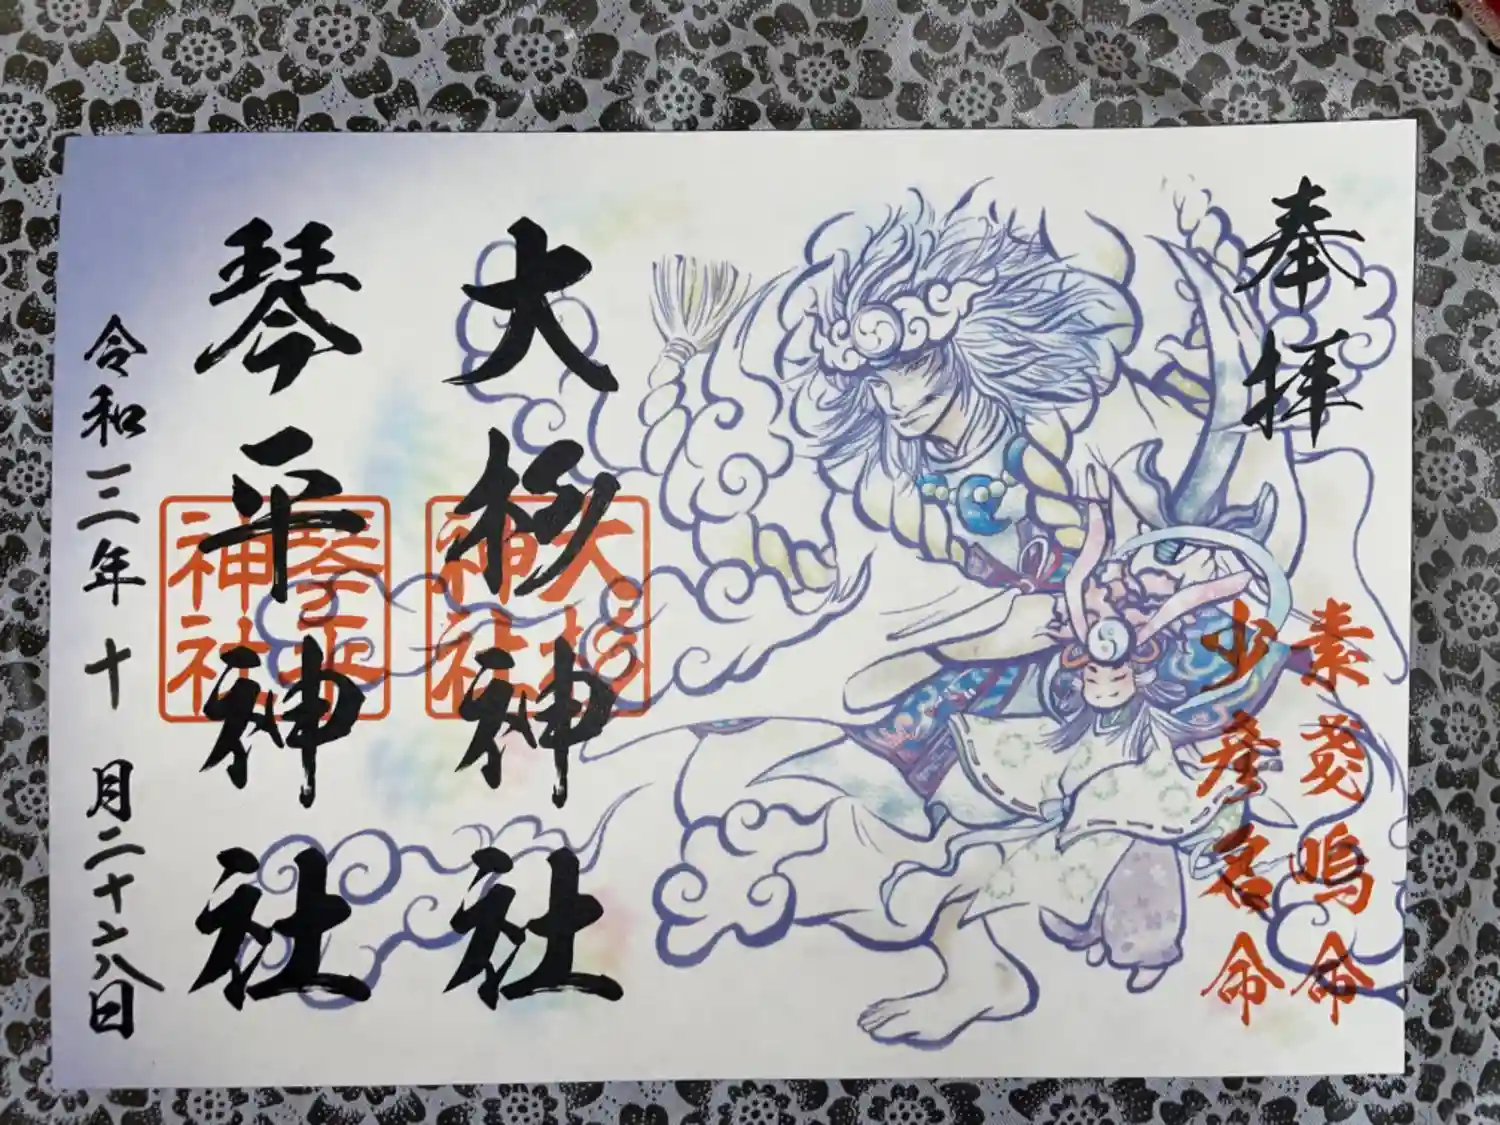 奉拝
素戔嗚命
少彦名命
大杉神社
大杉神社
琴平神社
琴平神社
令和三年十月二十六日